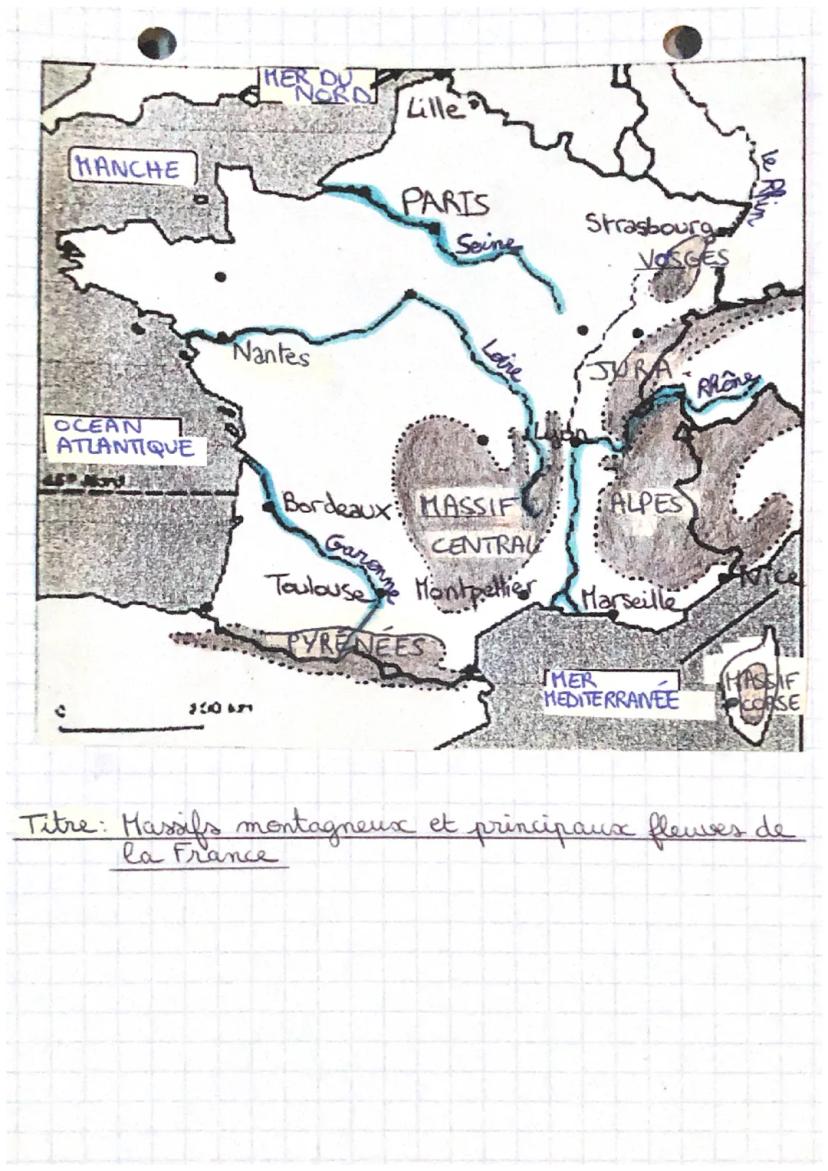 MER DU
NORD
Lille
MANCHE
le Rhin
PARIS
Strasbourg
Seine
VOSGES
Nantes
Loire
JURA
Rhône
OCEAN
ATLANTIQUE
Lyon
45° Nord
Bordeaux
MASSIF
CENTRAL
ALPES
Garonne
Toulouse
Montpellier
Nice
Marseille
PYRÉNÉES
MER
MEDITERRANÉE
MASSIF
CORSE
Titre: Massifs montagneux et principaux fleuves de
la France